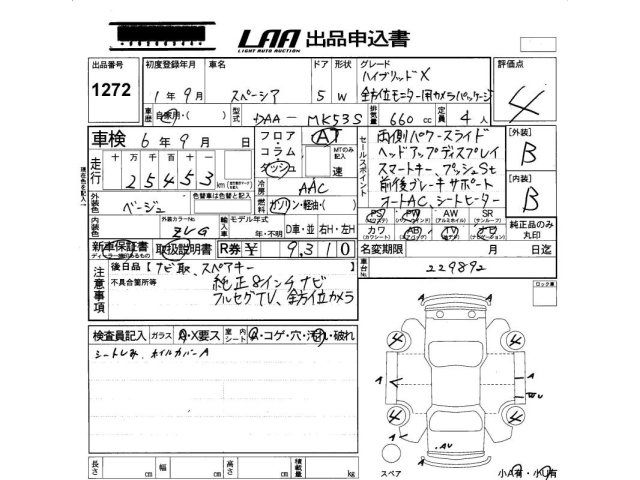 LAA 出品申込書
LIGHT AUTO AUCTION
出品番号
1272
初度登録年月
1年9月
車名
スペーシア
ドア
5
形状
W
グレード
ハイブリッドX
全方位モニター用カメラパッケージ
評価点
4
車歴
自家用・( )
型式
DAA-MK53S
排気量
660 cc
定員
4人
車検 6年9月 日
フロア・コラム・ダッシュ
AT
MTのみ記入
速
セールスポイント
両側パワースライド
ヘッドアップディスプレイ
スマートキー、プッシュSt
前後ブレーキサポート
オートAC、シートヒーター
【外装】
B
【内装】
B
走行
十 万 千 百 十
25453 km
冷房
AAC
燃料
ガソリン・軽油・( )
外装色
ベージュ
色替車は色替と記入
外装カラーNo
ZVG
輸入車
モデル年式
年・不明
D車・並 右H・左H
PS PW AW SR
カワ AB TV ナビ
純正品のみ丸印
新車保証書
取扱説明書
R券 ¥ 9,310
名変期限 月 日迄
注意事項
後日品 [ナビ取、スペアキー
不具合箇所等
純正8インチナビ
フルセグTV、全方位カメラ
車台No
229892
ロック車
検査員記入
ガラス
A・X要ス
室内シート
・コゲ・穴・汚れ・破れ
シートしみ、ホイルカバーA
4
4
4
4
A
A
A
WU
AU
長さ cm
幅 cm
高さ cm
積載量 kg
スペア
小A有・小U有